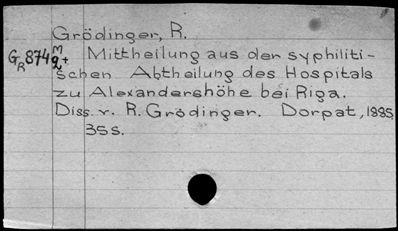 Grödinger, R.
GR 874 M
2+ Mittheilung aus der syphiliti-
schen Abtheilung des Hospitals
zu Alexandershöhe bei Riga.
Diss. v. R. Grödinger. Dorpat, 1885
35 s.